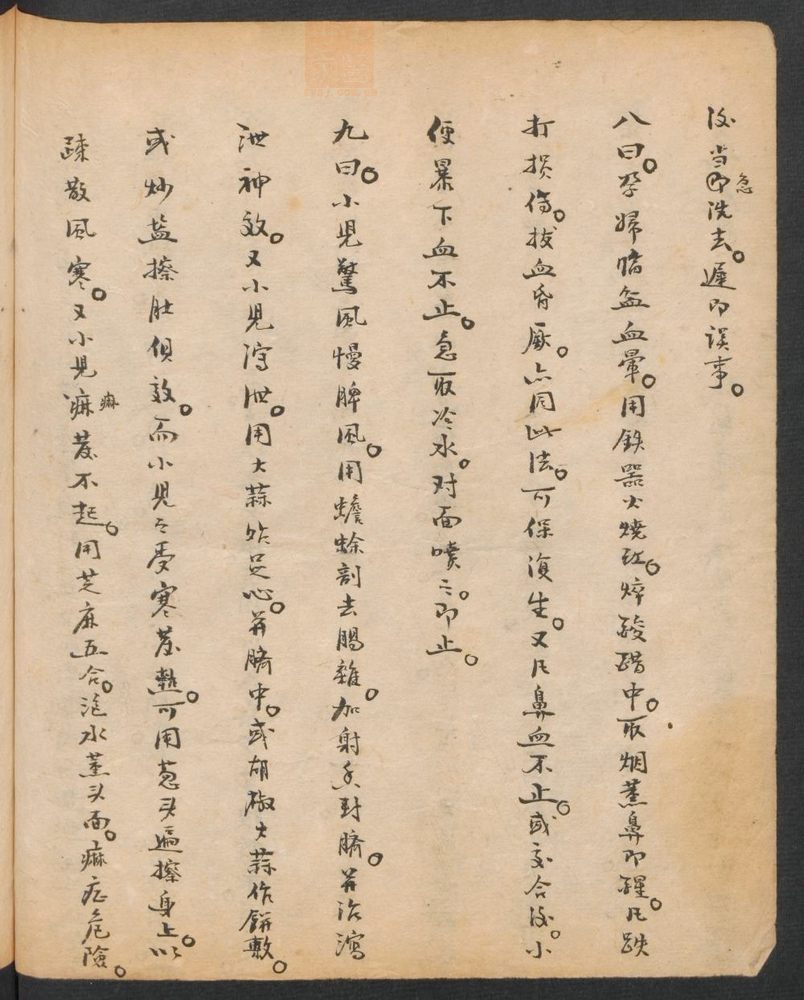 後当即急洗去。遲即误事。
八曰。孕婦临盆血暈。用鉄器火燒红。焠酸醋中。取烟薰鼻即醒。凡跌
打损傷。拔血昏厥。亦同此法。可保復生。又凡鼻血不止。或交合後。小
便暴下血不止。急取冷水。对面噴之。即止。
九曰。小児驚風慢脾風。用蟾蜍剖去腸雜。加射香对臍。並治瀉
泄神效。又小児泻泄。用大蒜贴足心。並臍中。或胡椒大蒜作餅敷。
或炒盐擦肚俱效。而小児之受寒發热。可用葱头遍擦身上。以
疎散風寒。又小児痳麻發不起。用芝麻五合。泡水薰头面。痳症危險。